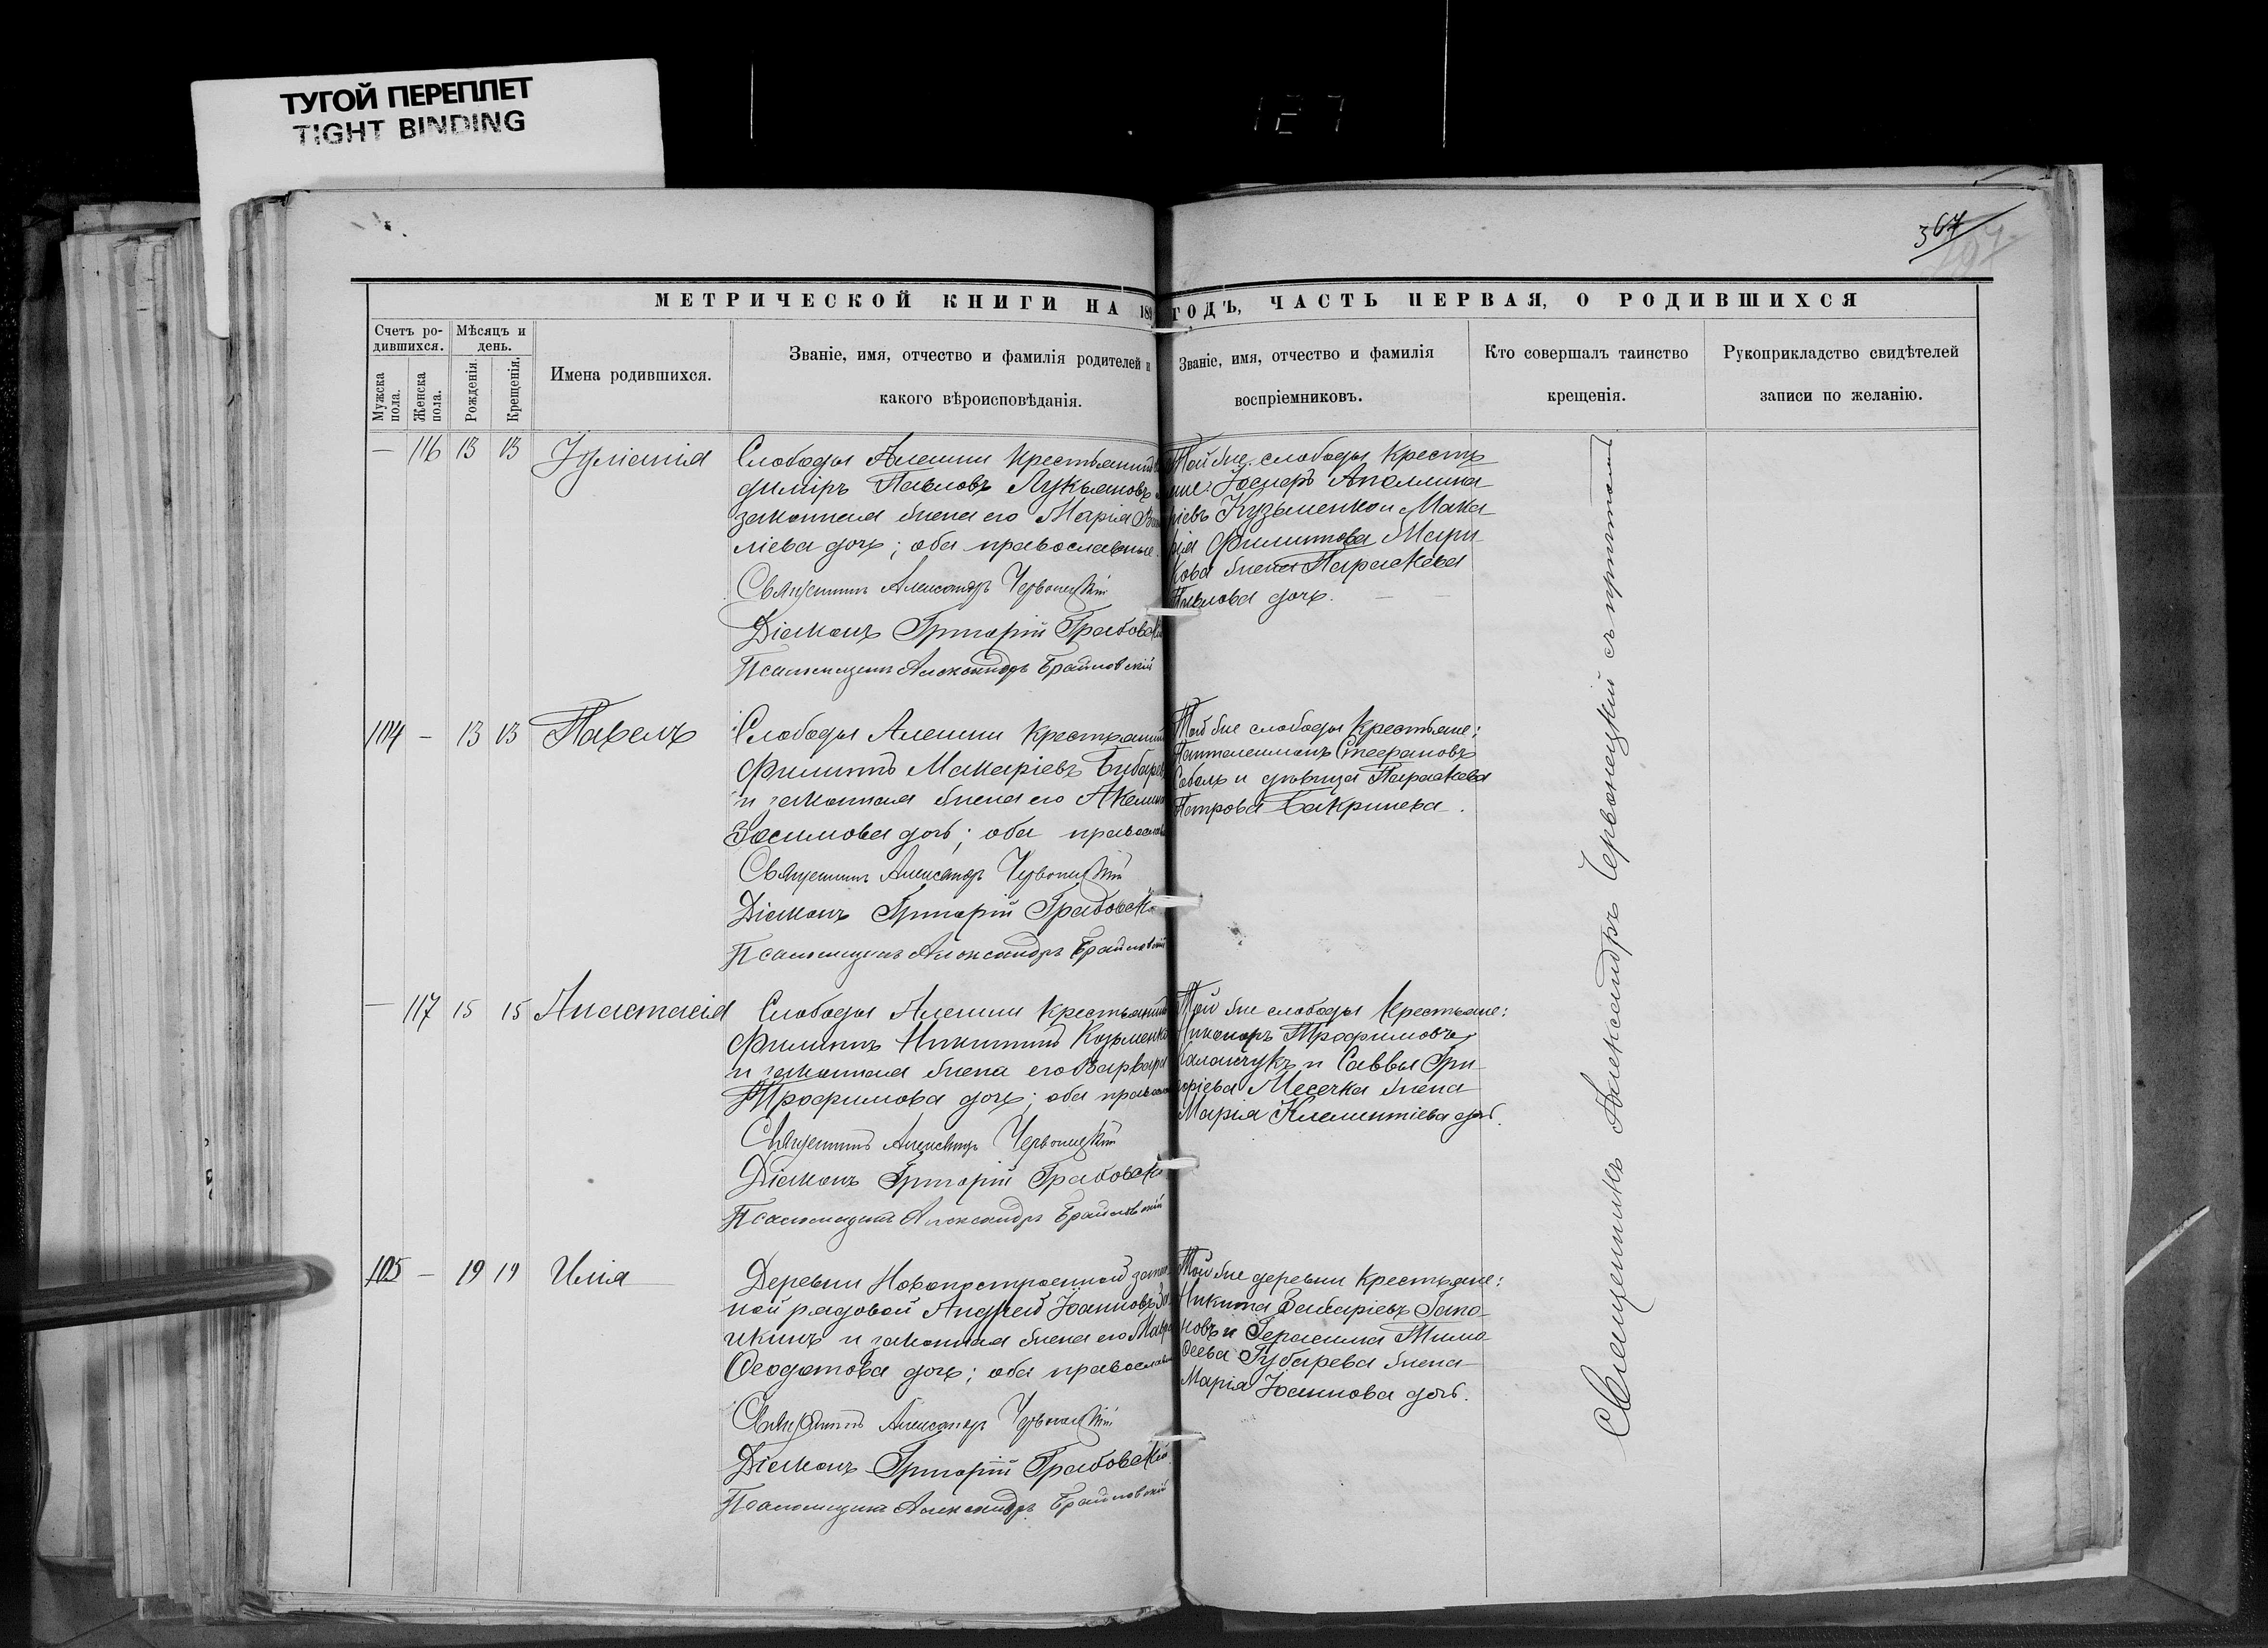 ТУГОЙ ПЕРЕПЛЕТ
TIGHT BINDING
127
367
МЕТРИЧЕСКОЙ КНИГИ НА 189 ГОДЪ, ЧАСТЬ ПЕРВАЯ, О РОДИВШИХСЯ
Счетъ ро-
дившихся.
Мѣсяцъ и
день.
Мужска
пола.
Женска
пола.
Рожденія.
Крещенія.
Имена родившихся.
Званіе, имя, отчество и фамилія родителей и
какого вѣроисповѣданія.
Званіе, имя, отчество и фамилія
воспріемниковъ.
Кто совершалъ таинство
крещенія.
Рукоприкладство свидѣтелей
записи по желанію.
— 116 13 13 Іуліанія
Слободы Алешки крестьянинъ
диміръ Павловъ Лукьяновъ
законная жена его Марія
ліева дочь; оба православные.
Священникъ Александръ Червонецкій
Діаконъ Григорій Грабовскій
Псаломщикъ Александръ Браиловскій
Той же слободы крестья
не: Іосифъ Аполлина
ріевъ Кузьменко и Мака
рія Филиппова
кова жена Параскева
Павлова дочь.
104 — 13 13 Павелъ
Слободы Алешки крестьянинъ
Филиппъ Макаріевъ
и законная жена его Акилина
Зосимова дочь; оба православ
Священникъ Александръ Червонецкій
Діаконъ Григорій Грабовскі
Псаломщикъ Александръ Браиловскій
Той же слободы крестьяне:
Пантелеимонъ Стефановъ
Соболь и дѣвица Параскева
Петрова
— 117 15 15 Анастасія
Слободы Алешки крестьянинъ
Филиппъ Никитинъ Козьменко
и законная жена его Варвара
Трофимова дочь; оба правосл
Священникъ Александръ Червонецкій
Діаконъ Григорій Грабовскі
Псаломщикъ Александръ Браиловскій
Той же слободы крестьяне:
Никаноръ Трофимовъ
и Саввы Гри
горіева Месечка жена
Марія Климентіева дочь.
105 — 19 19 Илія
Деревни Новопостроенной запас
ной рядовой Андрей Іоанновъ
икинъ и законная жена его Мавра
Ѳеодотова дочь; оба православ
Священникъ Александръ Червонецкій
Діаконъ Григорій Грабовскій
Псаломщикъ Александръ Браиловскій
Той же деревни крестьяне:
Никита Захаріевъ Гапо
новъ и Герасима Тимо
ѳеева Губарева жена
Марія Іоаннова дочь.
Священникъ Александръ Червонецкій съ причтомъ